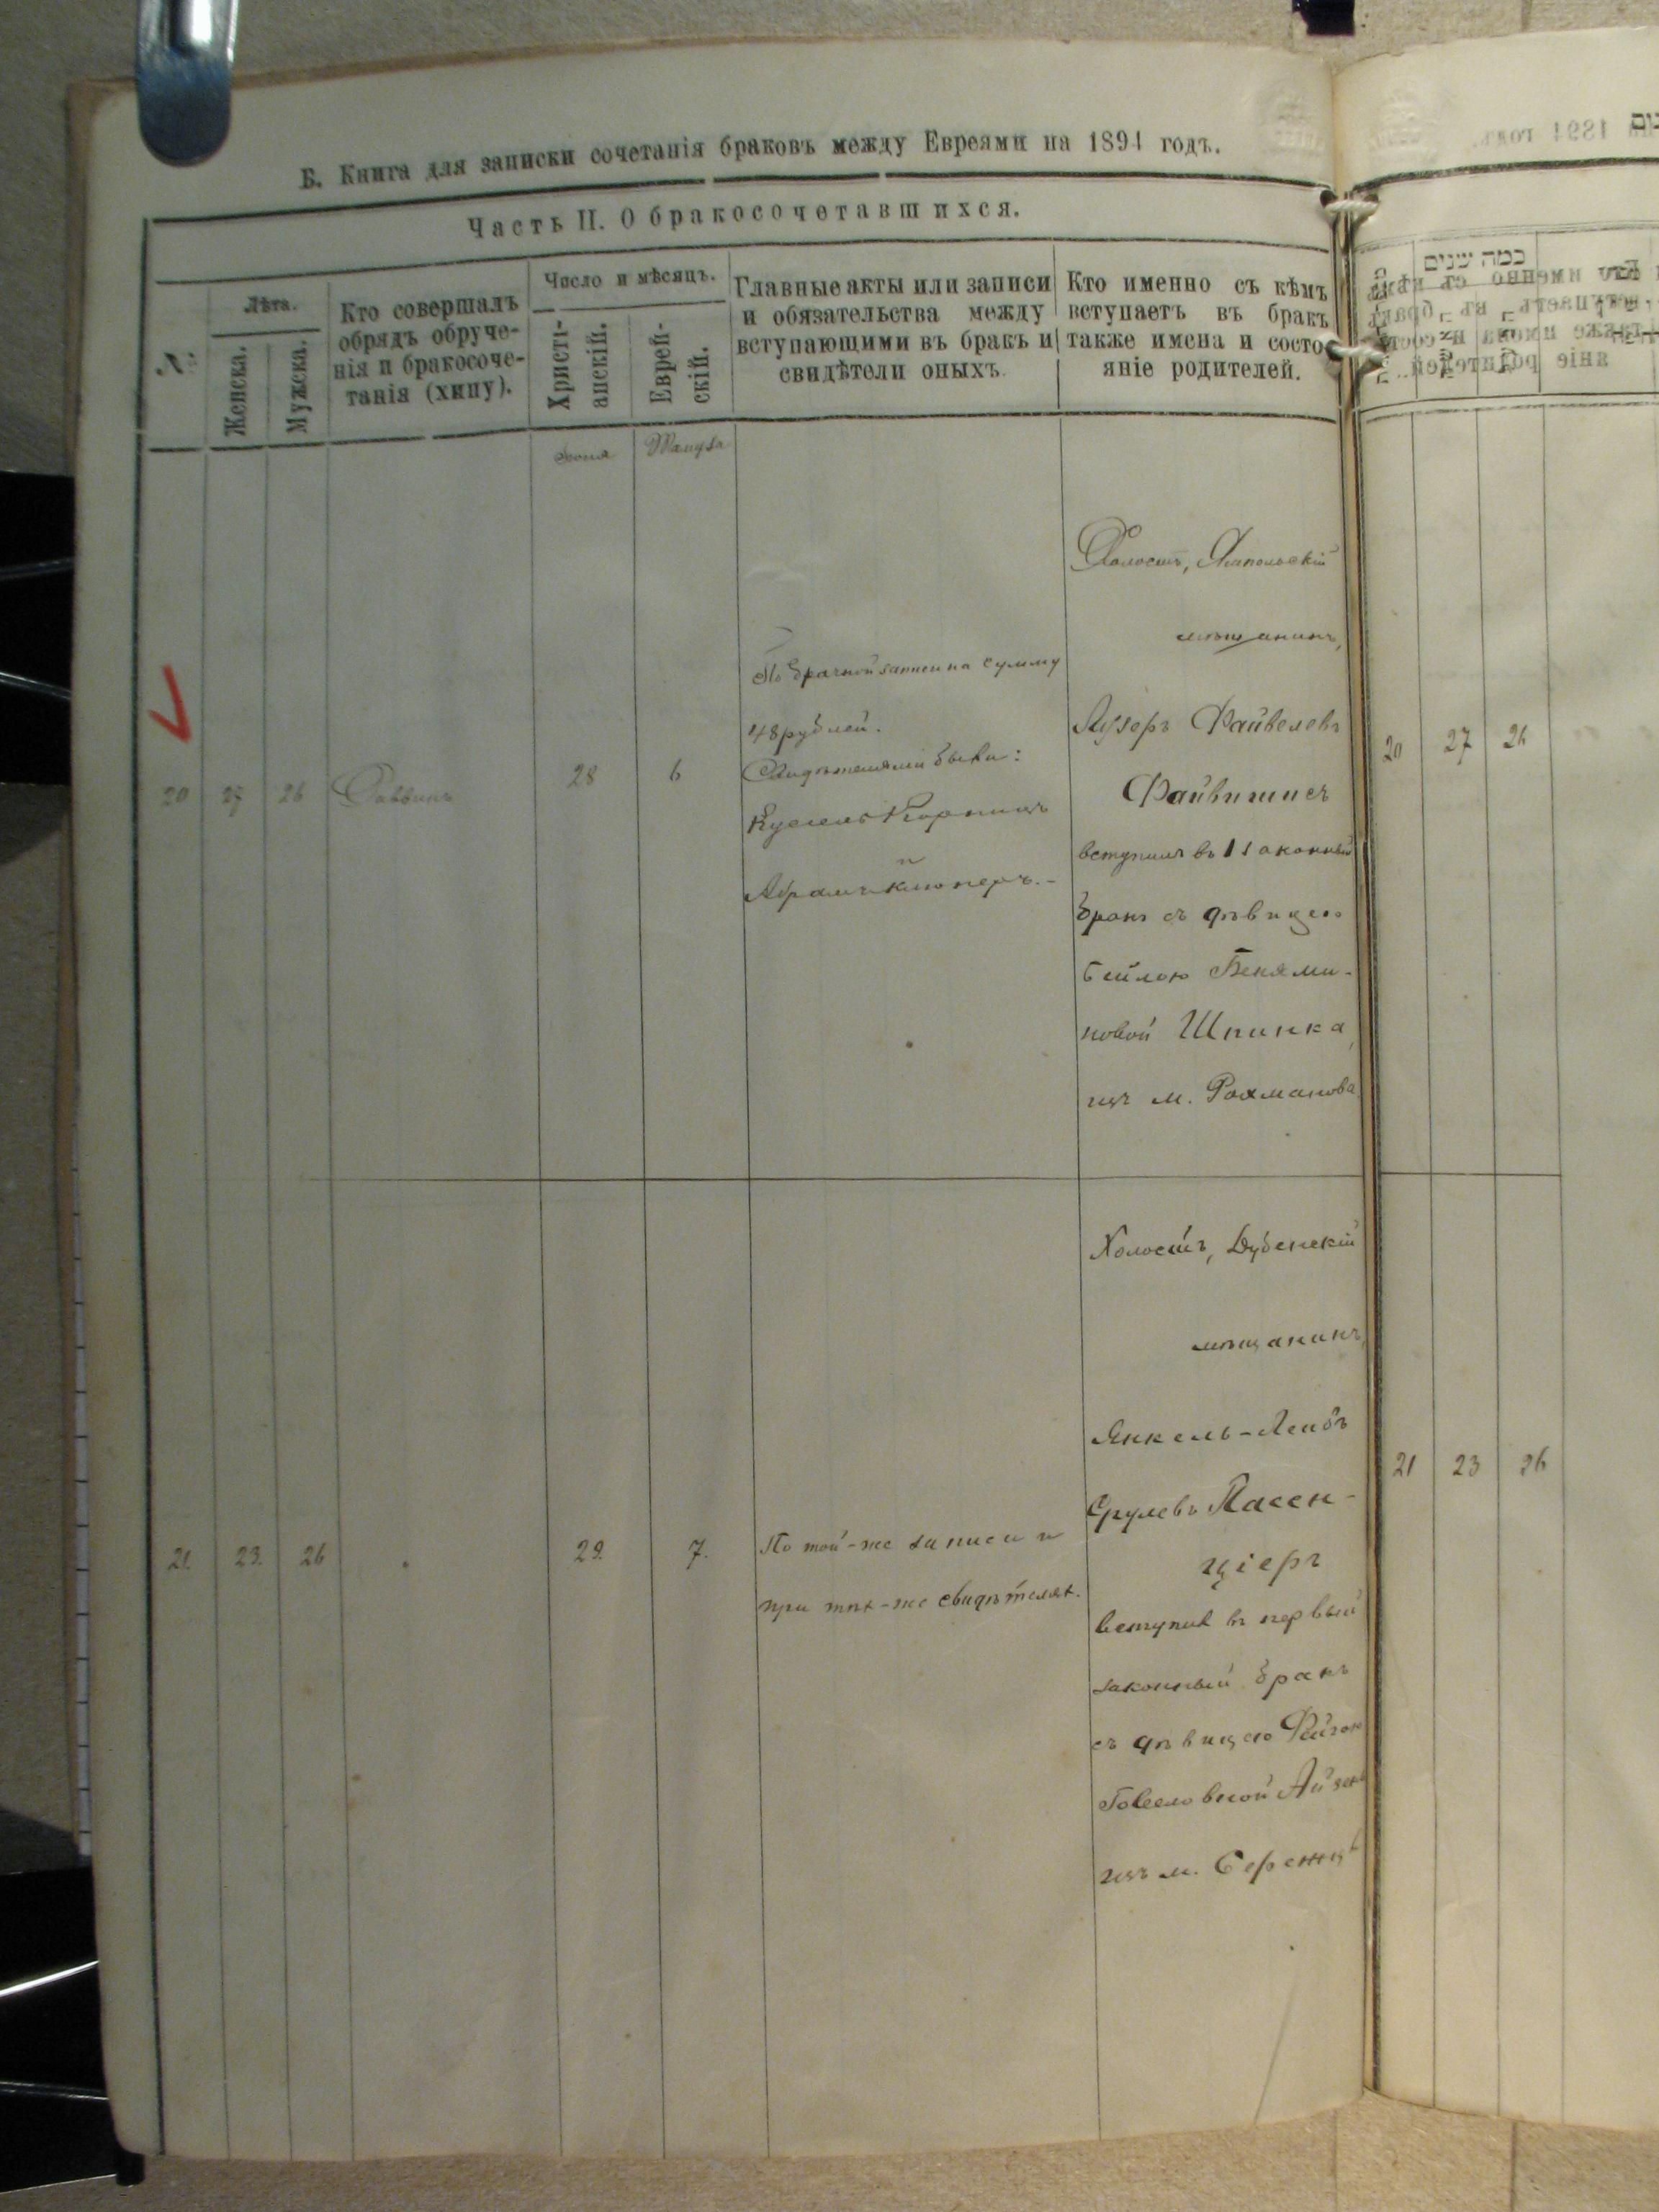 Б. Книга для записки сочетанія браковъ между Евреями на 1894 годъ.
Часть II. О бракосочетавшихся.
№
Лѣта.
Женска.
Мужска.
Кто совершалъ
обрядъ обруче-
нія и бракосоче-
танія (хипу).
Число и мѣсяцъ.
Христі-
анскій.
Еврей-
скій.
Главные акты или записи
и обязательства между
вступающими въ бракъ и
свидѣтели оныхъ.
Кто именно съ кѣмъ
вступаетъ въ бракъ
также имена и состо-
яніе родителей.
Тамуза
20
27
26
Раввинъ
28
6
По брачной записи на сумму
48 рублей.
Свидѣтелями были:
и
Холостъ, Ямпольскій
мѣщанинъ,
Лузеръ Файвелевъ
Файвишисъ
вступилъ въ 1 законный
бракъ съ дѣвицею
Бейлою Беня­ми-
новой Шпинка,
изъ м. Рахманова
21.
23.
26
29.
7.
По той-же записи и
при тѣх-же свидѣтелях.
Холостъ, Дубенскій
мѣщанинъ,
Янкель-Лейбъ
Срулевъ Пасен-
ціеръ
вступил въ первый
законный бракъ
съ дѣвицею Фейгою
изъ м.
20 27 26
21 23 26
כמה שנים